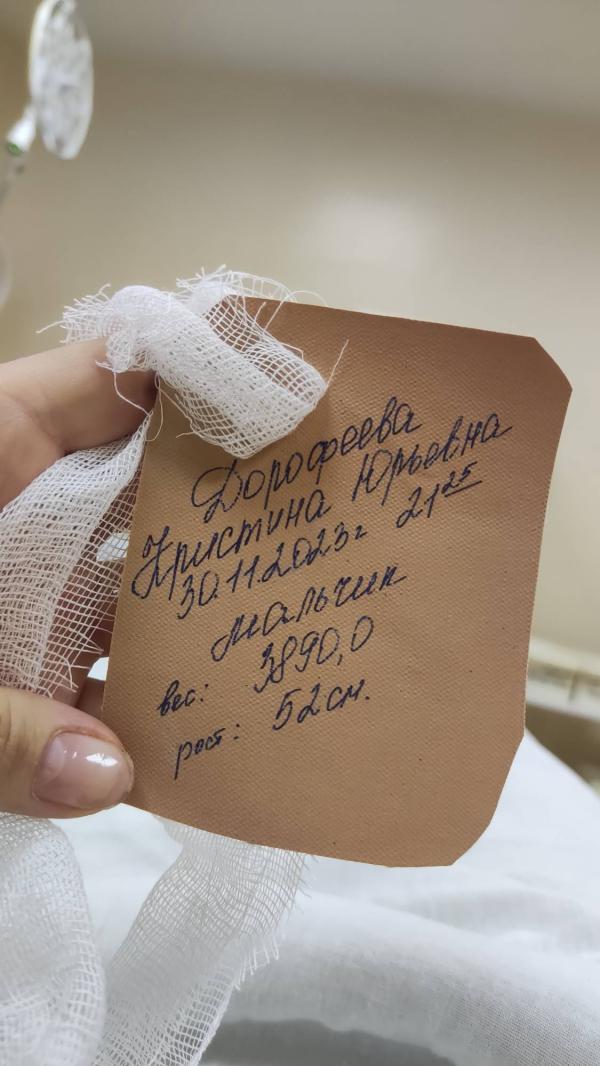 Дорофеева
Кристина Юрьевна
30.11.2023г 21²⁵
мальчик
вес: 3890,0
рост: 52см.